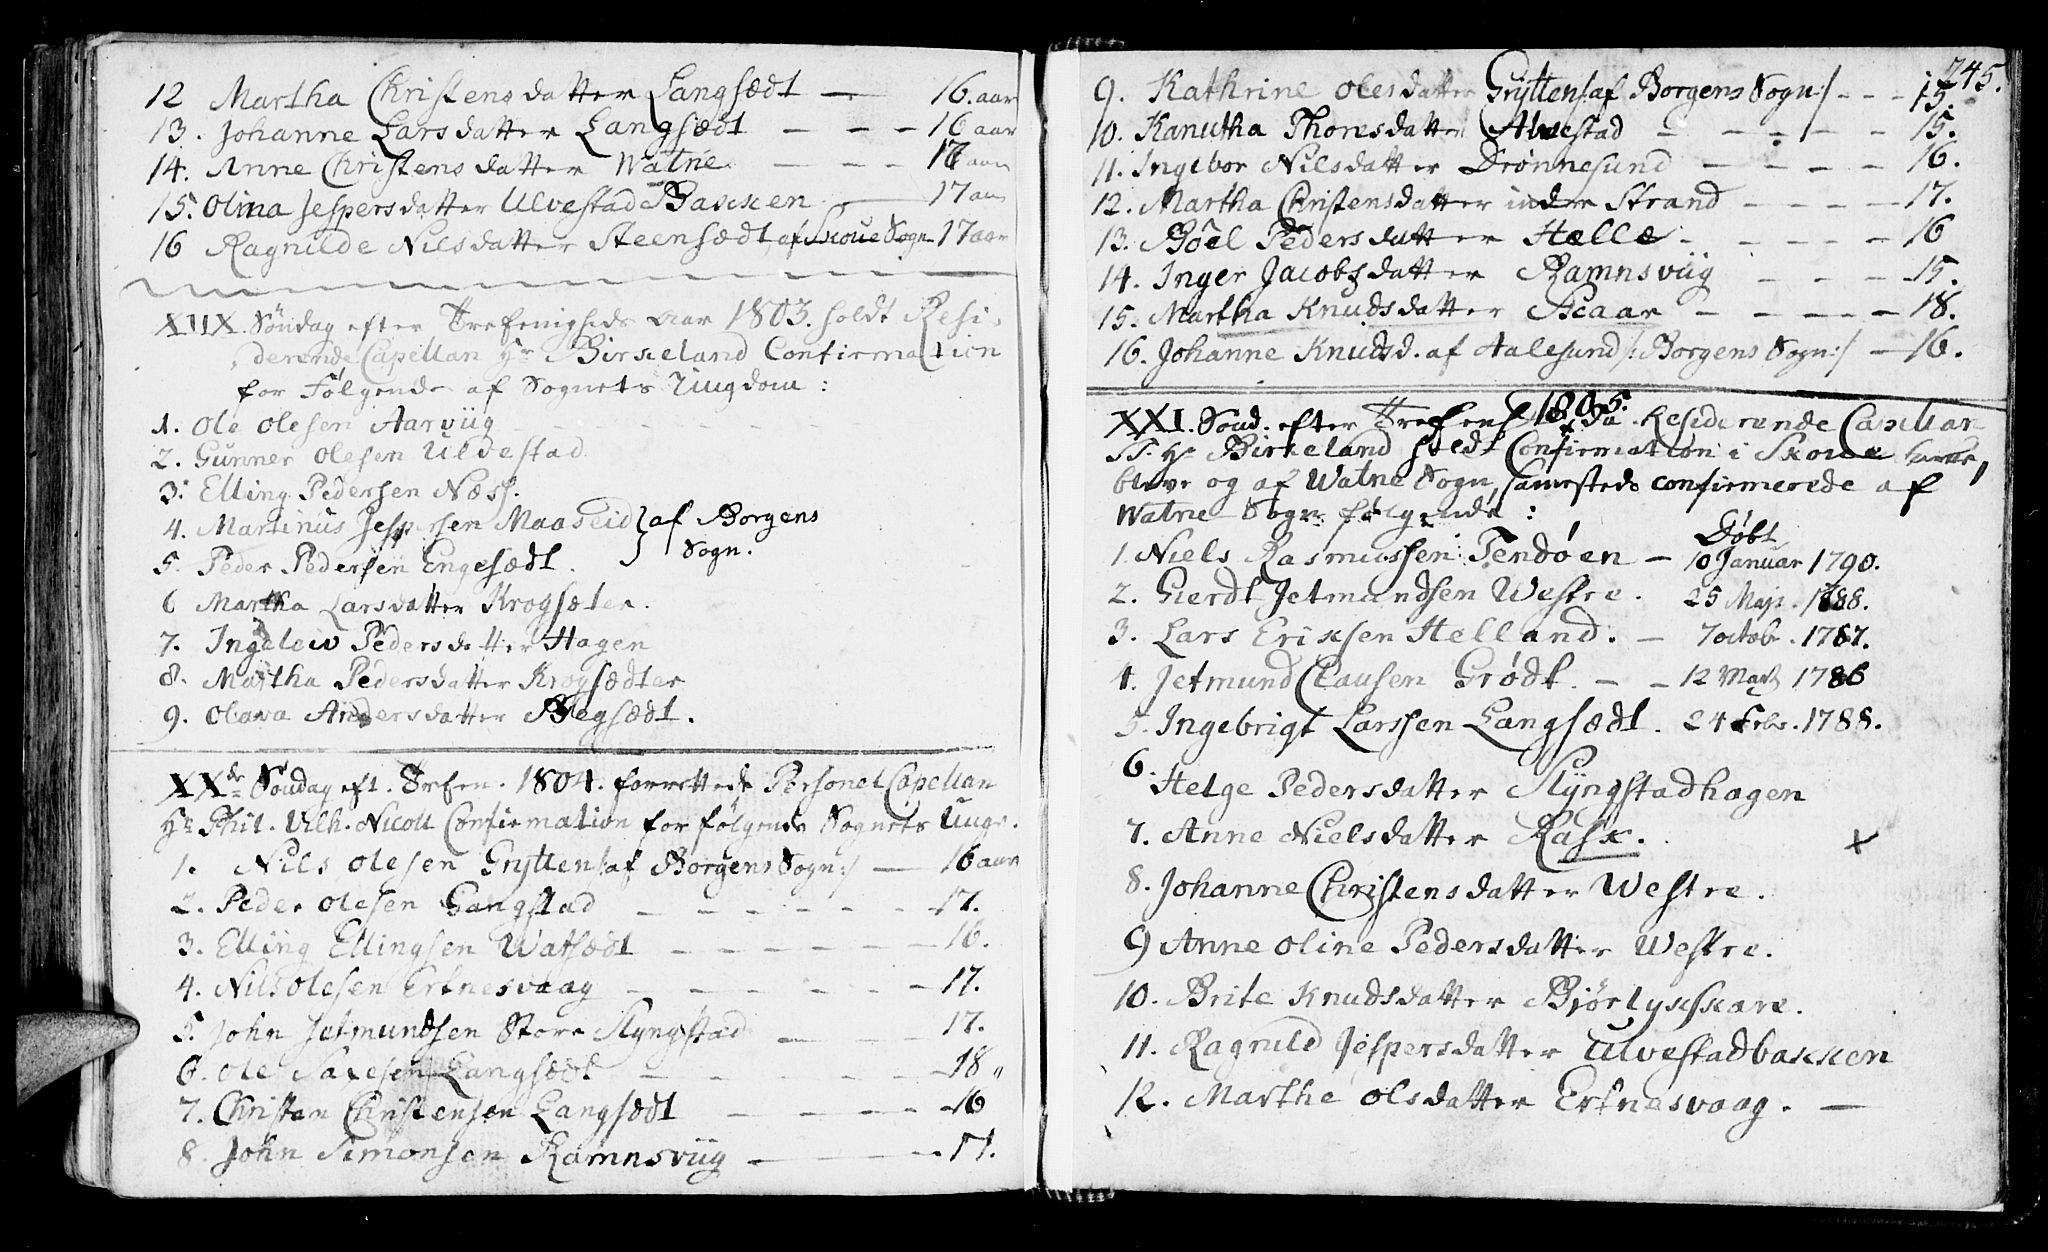 12 Martha Christensdatter Langsædt — 16. aar
13. Johanne Larsdatter Langsædt — — — 16 aar
14. Anne Christensdatter Watne — — — 16 aar
15. Olina Jespersdatter Ulvestad Backen — 17 aar
16 Ragnilde Nilsdatter Steensædt af Skoue Sogn 17 aar
XIIX Søndag efter Trefenigheds aar 1803. holdt Resi-
derende Capellan Hr Birkeland Confirmation
for Følgende af Sognets Ungdom:
1. Ole Olesen Aarviig
2. Gunner Olesen Ulvestad
3. Elling Pedersen Næss.
4. Martinus Jespersen Maaseid } af Borgens
5. Peder Pedersen Engesædt. } Sogn.
6 Martha Larsdatter Krogsæter.
7. Ingelew Pedersdatter Hagen
8. Martha Pedersdatter Krogsædter
9. Olava Andersdatter Blegsædt.
XXde Søndag eft. Trefen. 1804. forrettede Personel Capellan
Hr Phil. Vilh. Nicoll Confirmation for følgende Sognets Unge.
1. Nils Olesen Grytten /: af Borgens Sogn :/ — 16 aar
2. Peder Olesen Gangstad — — — — — 17.
3. Elling Ellingsen Watsædt — — — — — 16.
4. Nils Olesen Ertnesvaag — — — — — 17.
5. John Jetmundsen Store Klyngstad — — — 17.
6. Ole Saxesen Langsædt — — — — — 18 "
7. Christen Christensen Langsædt — — — — 16
8. John Simonsen Ramnsviig — — — — 17.
245.
9. Kathrine Olesdatter Grytten /: af Borgens Sogn :/ - - - 15.
10. Kanutha Thoresdatter Alvestad — — — — — 15.
11. Ingebor Nilsdatter Drønnesund — — — — 16.
12. Martha Christensdatter indre Strand — — — — 17.
13. Boel Pedersdatter Helle — — — — — 16
14. Inger Jacobsdatter Ramnsviig — — — — 15.
15. Martha Knudsdatter Scaar — — — — — 18.
16. Johanne Knudsd. af Aalesund /: Borgens Sogn :/ — 16.
XXI. Sønd. efter Trefens 1805. da Residerende Capellan
Hr Birkeland holdt Confirmation i Skoue
bleve og af Watne Sogn, samesteds confirmerede af
Watne Sogn følgende:
Døbt
1 Niels Rasmussen Tendøen — 10 Januar 1790.
2. Gierdt Jetmundsen Westre. 25 Maj. 1788.
3. Lars Erixsen Helland. — 7 octobr. 1787.
4. Jetmund Clausen Grødt — — 12 Marts 1786
5. Ingebrigt Larssen Langsædt. 24 Febr. 1788.
6. Helge Pedersdatter Klyngstadhagen
7. Anne Nielsdatter Rasx. x
8. Johanne Christensdatter Westre.
9 Anne Oline Pedersdatter Westre.
10. Brite Knudsdatter Bjørlyxskare.
11. Ragnild Jespersdatter Ulvestadbakken
12. Marthe Olsdatter Ertnesvaag. —